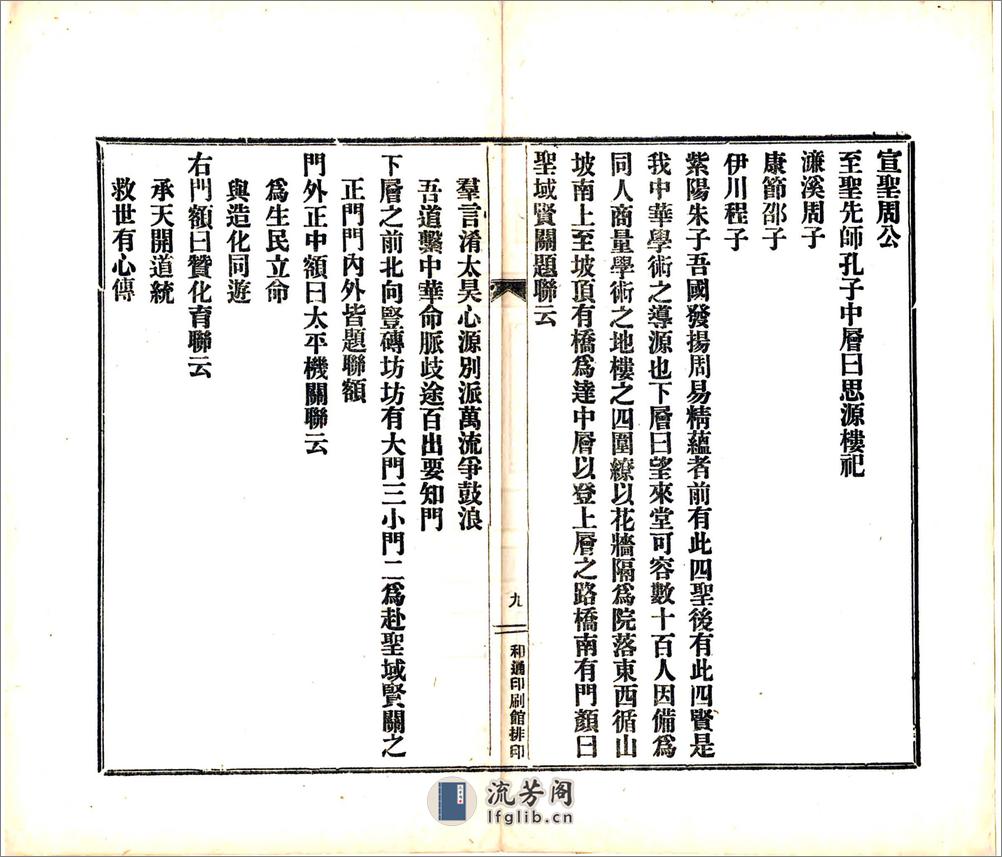 宣聖周公
至聖先師孔子中層曰思源樓祀
濂溪周子
康節邵子
伊川程子
紫陽朱子吾國發揚周易精蘊者前有此四聖後有此四賢是
我中華學術之導源也下層曰望來堂可容數十百人因備爲
同人商量學術之地樓之四圍繚以花牆隔爲院落東西循山
坡南上至坡頂有橋爲達中層以登上層之路橋南有門顏曰
聖域賢關題聯云
九
和通印刷館排印
羣言淆太昊心源別派萬流爭鼓浪
吾道繫中華命脈歧途百出要知門
下層之前北向豎磚坊坊有大門三小門二爲赴聖域賢關之
正門門內外皆題聯額
門外正中額曰太平機關聯云
爲生民立命
與造化同遊
右門額曰贊化育聯云
承天開道統
救世有心傳
流芳阁
lfglib.cn